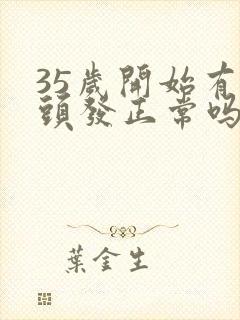 35歲開始有
頭發正常吗
葉金生